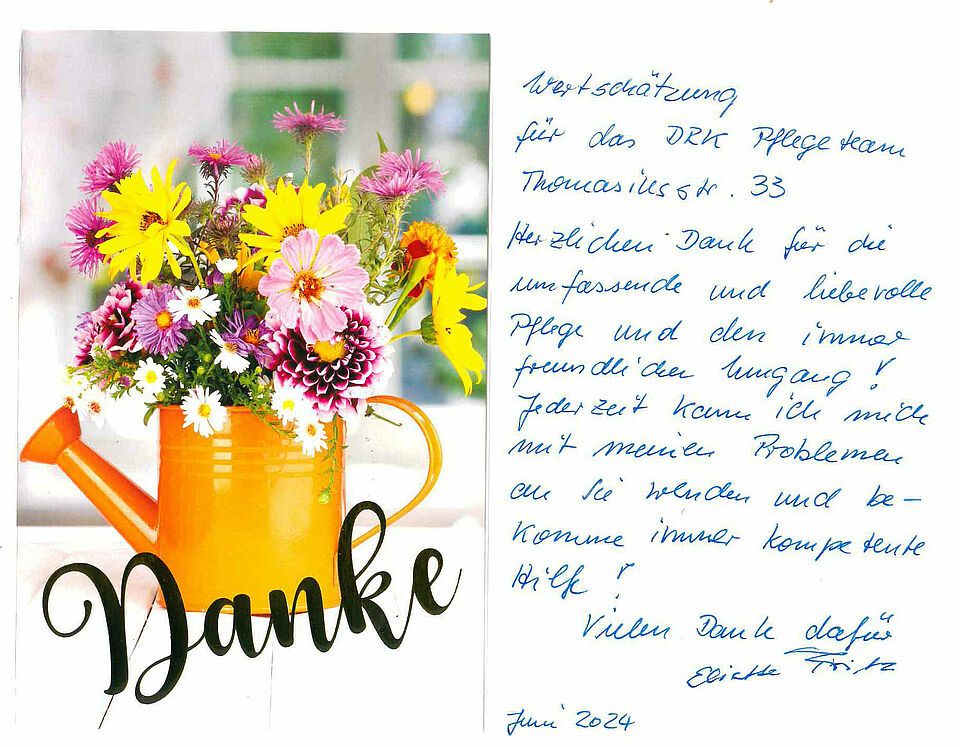 Danke
Wertschätzung
für das DRK Pflegeteam
Thomasiusstr. 33
Herzlichen Dank für die
umfassende und liebevolle
Pflege und den immer
freundlichen Umgang!
Jederzeit kann ich mich
mit meinen Problemen
an Sie wenden und be-
komme immer kompetente
Hilfe!
Vielen Dank dafür
Fritz
Juni 2024